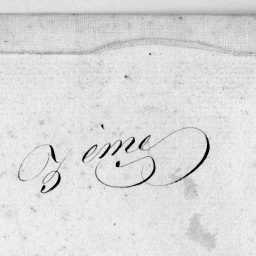 3 ème